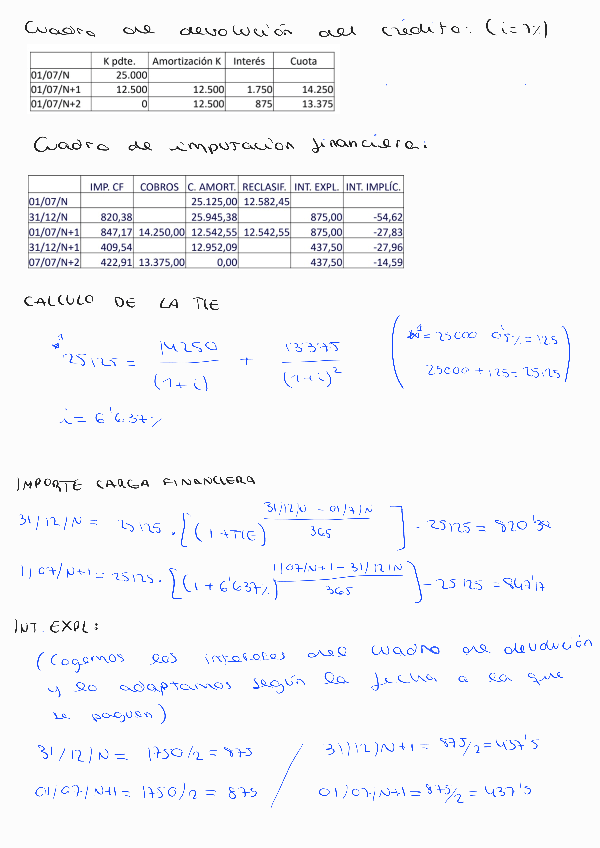 Cuadro de devolución del crédito: (i=7%)
K pdte. Amortización K Interés Cuota
01/07/N 25.000
01/07/N+1 12.500 12.500 1.750 14.250
01/07/N+2 0 12.500 875 13.375
Cuadro de imputación financiera:
IMP. CF COBROS C. AMORT. RECLASIF. INT. EXPL. INT. IMPLÍC.
01/07/N 25.125,00 12.582,45
31/12/N 820,38 25.945,38 875,00 -54,62
01/07/N+1 847,17 14.250,00 12.542,55 12.542,55 875,00 -27,83
31/12/N+1 409,54 12.952,09 437,50 -27,96
07/07/N+2 422,91 13.375,00 0,00 437,50 -14,59
CALCULO DE LA TIE
*1 25125 = 14250/(1+i) + 13375/(1+i)²
(*1 = 25000 0'5% = 125
25000 + 125 = 25125)
i = 6'637%
IMPORTE CARGA FINANCIERA
31/12/N = 25125 · [(1+TIE)^(31/12/N - 01/7/N / 365)] - 25125 = 820'38
1/07/N+1 = 25125 · [(1+6'637%)^(1/07/N+1 - 31/12/N / 365)] - 25125 = 847'17
INT. EXPL:
(Cogemos los intereses del cuadro de devolución
y lo adaptamos según la fecha a la que
se paguen)
31/12/N = 1750/2 = 875 / 31/12/N+1 = 875/2 = 437'5
01/07/N+1 = 1750/2 = 875 01/07/N+1 = 875/2 = 437'5